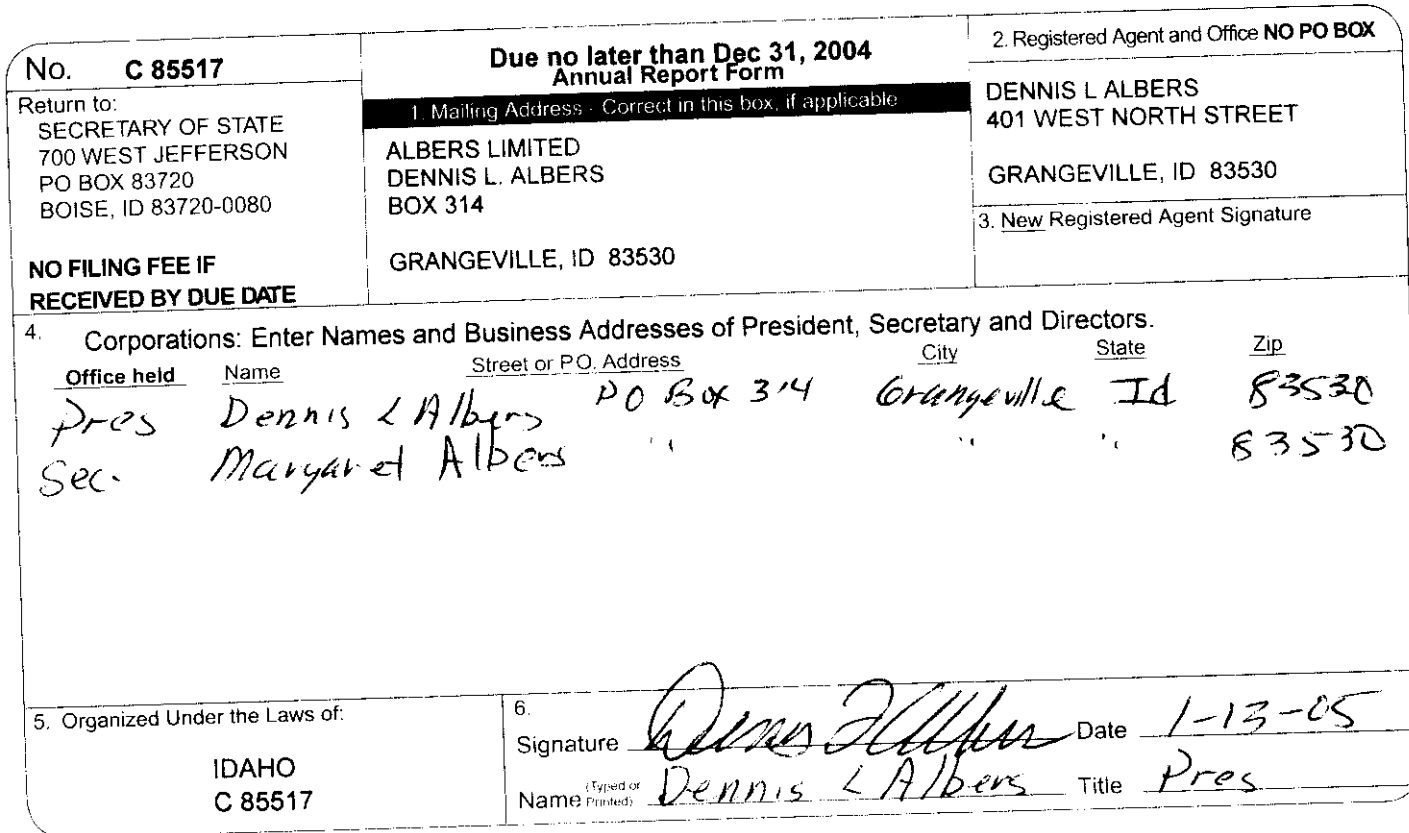 No. C 85517
Return to:
SECRETARY OF STATE
700 WEST JEFFERSON
PO BOX 83720
BOISE, ID 83720-0080
NO FILING FEE IF
RECEIVED BY DUE DATE
Due no later than Dec 31, 2004
Annual Report Form
1. Mailing Address - Correct in this box, if applicable
ALBERS LIMITED
DENNIS L. ALBERS
BOX 314
GRANGEVILLE, ID 83530
2. Registered Agent and Office NO PO BOX
DENNIS L ALBERS
401 WEST NORTH STREET
GRANGEVILLE, ID 83530
3. New Registered Agent Signature
4. Corporations: Enter Names and Business Addresses of President, Secretary and Directors.
Office held Name Street or P.O. Address City State Zip
Pres Dennis L Albers PO Box 314 Grangeville Id 83530
Sec. Margaret Albers " " " 83530
5. Organized Under the Laws of:
IDAHO
C 85517
6.
Signature Dennis L Albers Date 1-13-05
Name (Typed or Printed) Dennis L Albers Title Pres